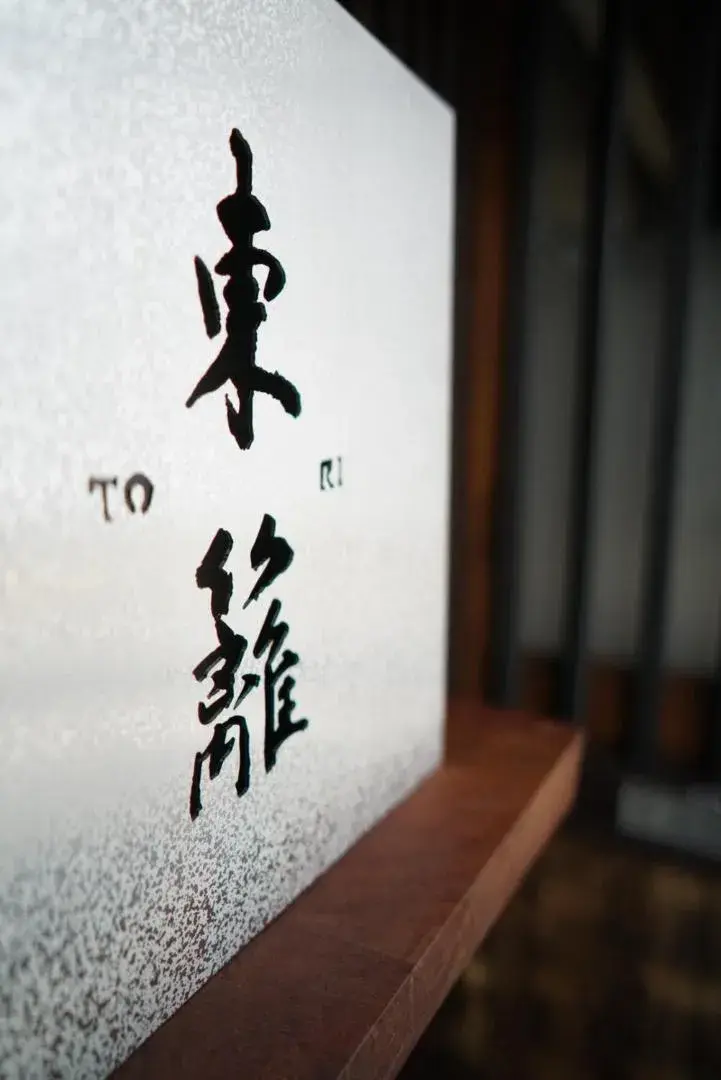 東籬
TO RI